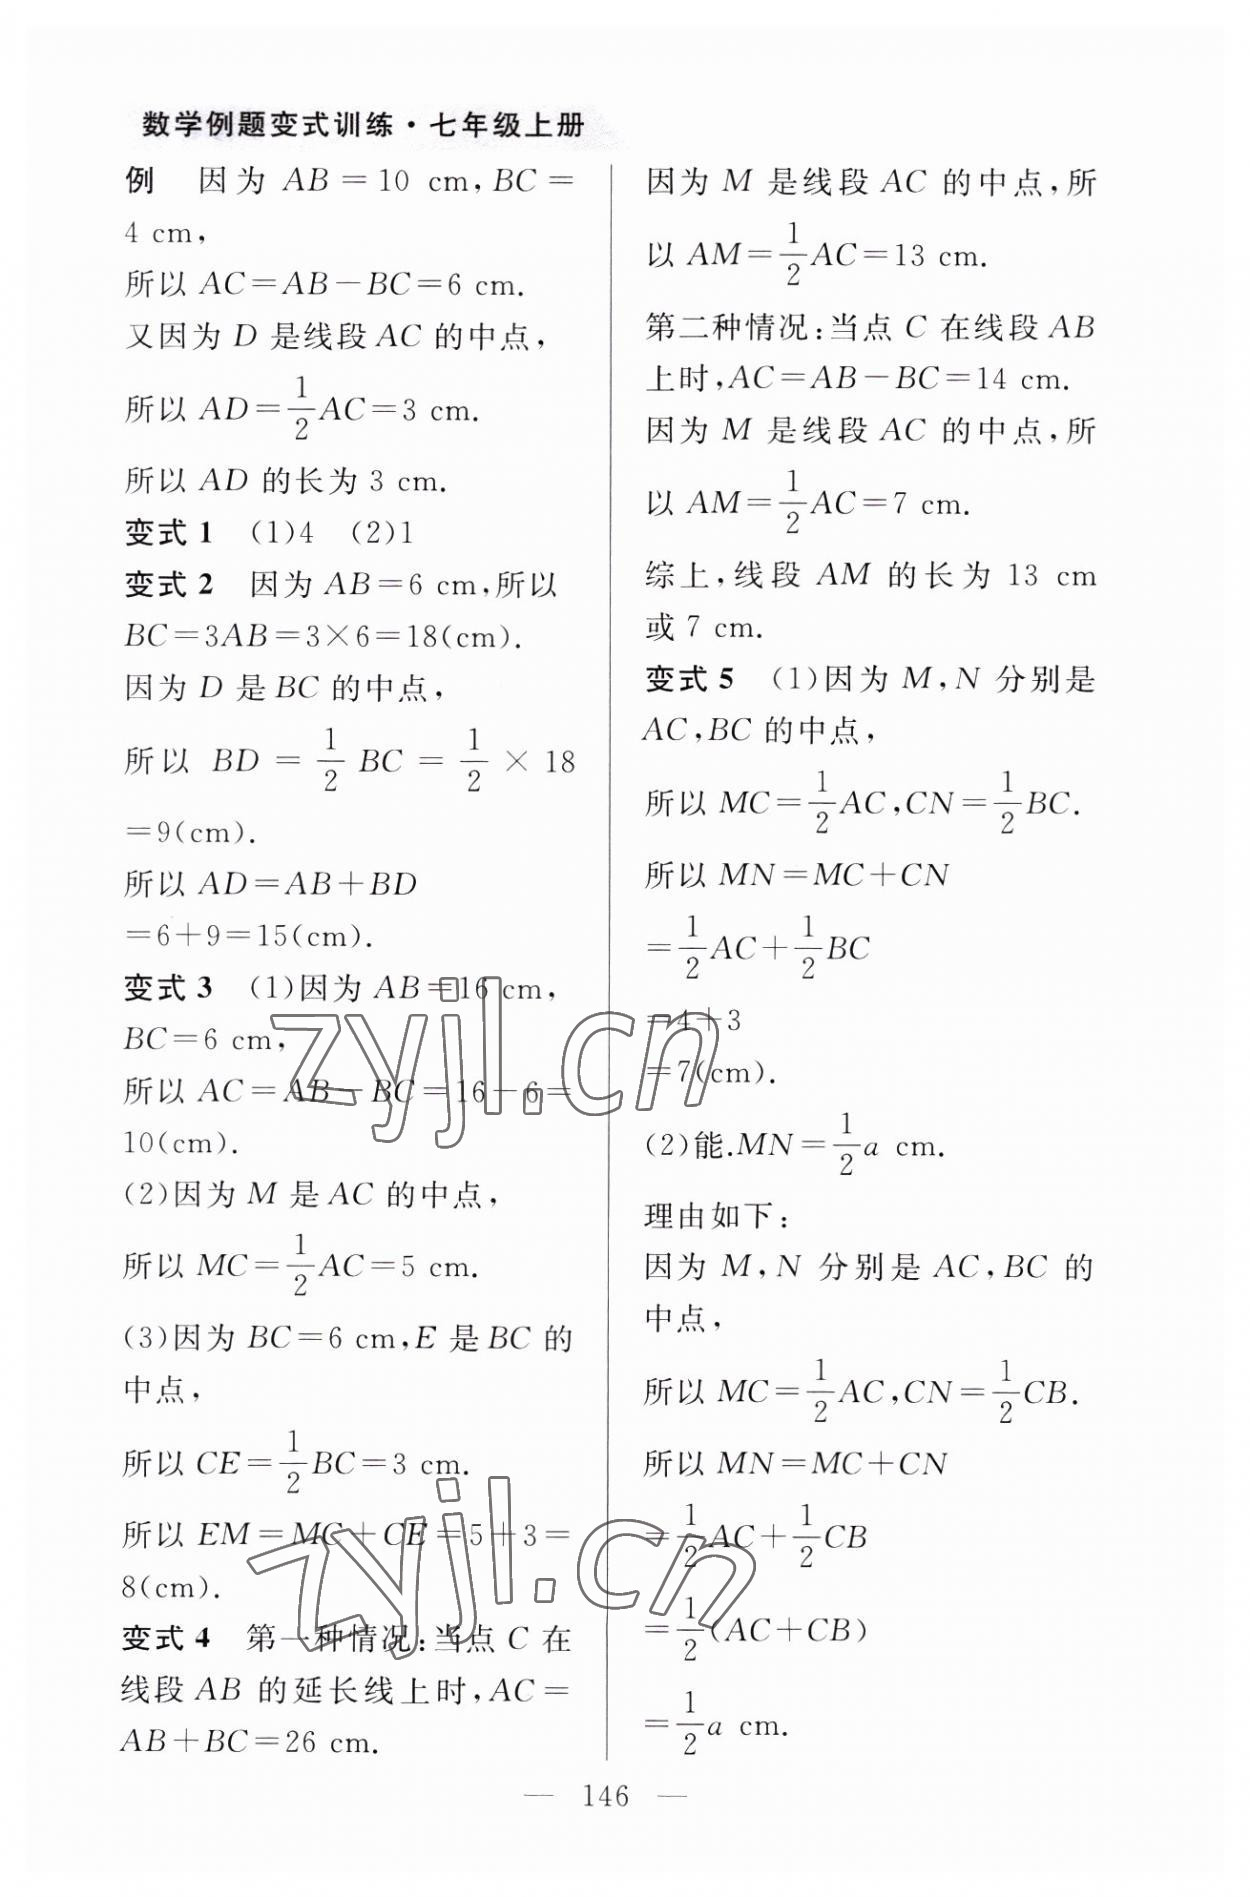 数学例题变式训练·七年级上册
例 因为 AB=10 cm,BC=
4 cm,
所以 AC=AB-BC=6 cm.
又因为 D 是线段 AC 的中点,
所以 AD=1/2AC=3 cm.
所以 AD 的长为 3 cm.
变式 1 (1)4 (2)1
变式 2 因为 AB=6 cm,所以
BC=3AB=3×6=18(cm).
因为 D 是 BC 的中点,
所以 BD=1/2BC=1/2×18
=9(cm).
所以 AD=AB+BD
=6+9=15(cm).
变式 3 (1)因为 AB=16 cm,
BC=6 cm,
所以 AC=AB-BC=16-6=
10(cm).
(2)因为 M 是 AC 的中点,
所以 MC=1/2AC=5 cm.
(3)因为 BC=6 cm,E 是 BC 的
中点,
所以 CE=1/2BC=3 cm.
所以 EM=MC+CE=5+3=
8(cm).
变式 4 第一种情况:当点 C 在
线段 AB 的延长线上时,AC=
AB+BC=26 cm.
因为 M 是线段 AC 的中点,所
以 AM=1/2AC=13 cm.
第二种情况:当点 C 在线段 AB
上时,AC=AB-BC=14 cm.
因为 M 是线段 AC 的中点,所
以 AM=1/2AC=7 cm.
综上,线段 AM 的长为 13 cm
或 7 cm.
变式 5 (1)因为 M,N 分别是
AC,BC 的中点,
所以 MC=1/2AC,CN=1/2BC.
所以 MN=MC+CN
=1/2AC+1/2BC
=4+3
=7(cm).
(2)能.MN=1/2a cm.
理由如下:
因为 M,N 分别是 AC,BC 的
中点,
所以 MC=1/2AC,CN=1/2CB.
所以 MN=MC+CN
=1/2AC+1/2CB
=1/2(AC+CB)
=1/2a cm.
— 146 —
zyjl.cn
zyjl.cn